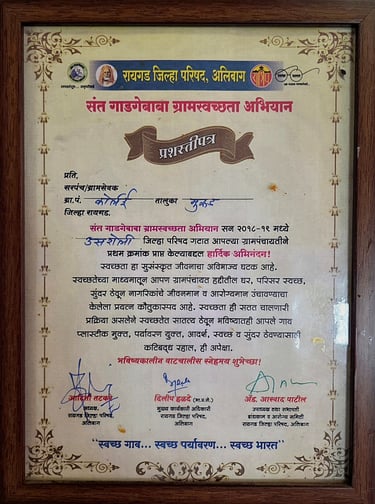 रायगड जिल्हा परिषद, अलिबाग
संत गाडगेबाबा ग्रामस्वच्छता अभियान
प्रशस्तीपत्र
प्रति,
सरपंच/ग्रामसेवक
ग्रा.पं. कोर्लई तालुका मुरूड
जिल्हा रायगड.
संत गाडगेबाबा ग्रामस्वच्छता अभियान सन २०१८-१९ मध्ये
उसरोली जिल्हा परिषद गटात आपल्या ग्रामपंचायतीने
प्रथम क्रमांक प्राप्त केल्याबद्दल हार्दिक अभिनंदन!
स्वच्छता हा सुसंस्कृत जीवनाचा अविभाज्य घटक आहे.
स्वच्छतेच्या माध्यमातून आपण ग्रामपंचायत हद्दीतील घर, परिसर स्वच्छ,
सुंदर ठेवून नागरिकांचे जीवनमान व आरोग्यमान उंचावण्याचा
केलेला प्रयत्न कौतुकास्पद आहे. स्वच्छता ही सतत चालणारी
प्रक्रिया असलेने स्वच्छतेत सातत्य ठेवून भविष्यातही आपले गाव
प्लास्टीक मुक्त, पर्यावरण युक्त, आदर्श, स्वच्छ व सुंदर ठेवण्यासाठी
कटिबद्ध रहाल, ही अपेक्षा.
भविष्यकालीन वाटचालीस स्नेहमय शुभेच्छा!
आदिती तटकरे दिलीप हळदे (भा.प्र.से.) अॅड. आस्वाद पाटील
अध्यक्ष, मुख्य कार्यकारी अधिकारी उपाध्यक्ष तथा सभापती
रायगड जिल्हा परिषद, रायगड जिल्हा परिषद, बांधकाम व आरोग्य समिती
अलिबाग अलिबाग रायगड जिल्हा परिषद, अलिबाग
"स्वच्छ गाव... स्वच्छ पर्यावरण... स्वच्छ भारत"